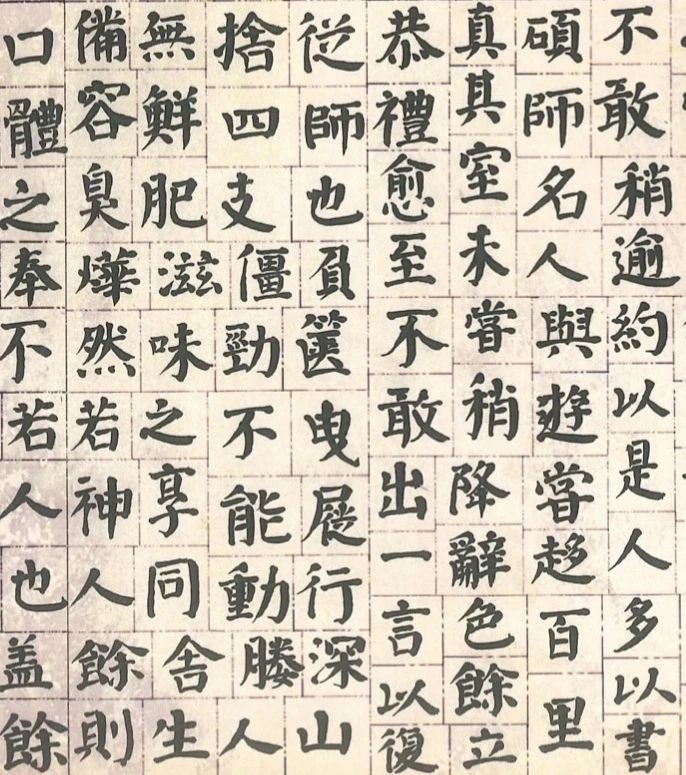 不敢稍逾約以是人多以書
碩師名人與遊嘗趍百里
真其室未嘗稍降辭色餘立
恭禮愈至不敢出一言以復
從師也負篋曳屣行深山
捨四支僵勁不能動媵人
無鮮肥滋味之享同舍生
備容臭燁然若神人餘則
口體之奉不若人也盖餘